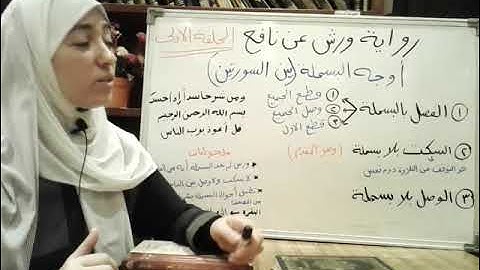 رواية ورش عن نافع الحلقة الاولى
أوجه البسملة (بين السورتين)
① الفصل بالبسملة
① قطع الجميع
② وصل الجميع
③ قطع الأول
② السكت بلا بسملة (وهو المقدم)
هو التوقف عن التلاوة دون تنفس
③ الوصل بلا بسملة
ومن شر حاسد إذا حسد
بسم الله الرحمن الرحيم
قل أعوذ برب الناس
ملحوظات